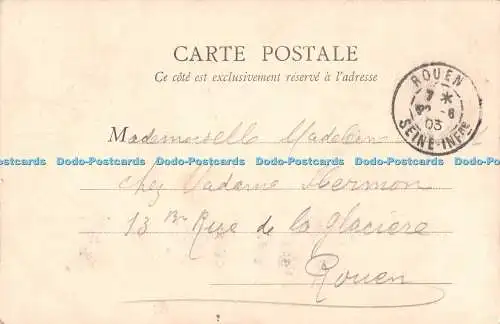 CARTE POSTALE
Ce côté est exclusivement réservé à l'adresse
ROUEN
7 *
-6
03
SEINE-INFRE
Mademoiselle Madelein
Dodo-Postcards Dodo-Postcards Dodo-Postcards Dodo-Postcards Dodo-Postcards Dodo-Postcards
chez Madame Hermon
13 Rue de la glacière
Rouen